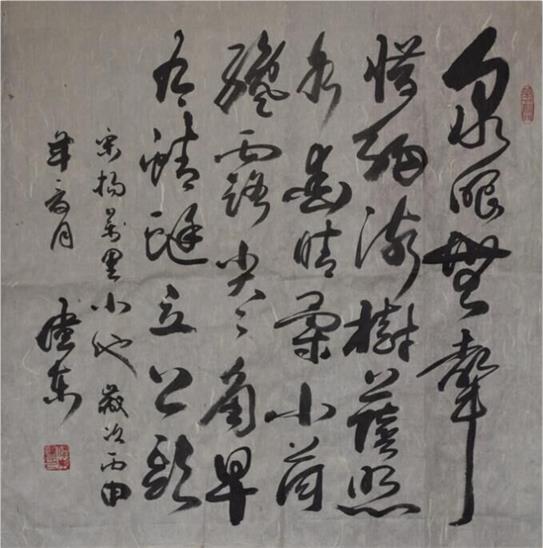 泉眼無聲
惜細流樹蔭照
水愛晴柔小荷
纔露尖々角早
有蜻蜓立上頭
宋楊萬里小池 歲次丙申
年月